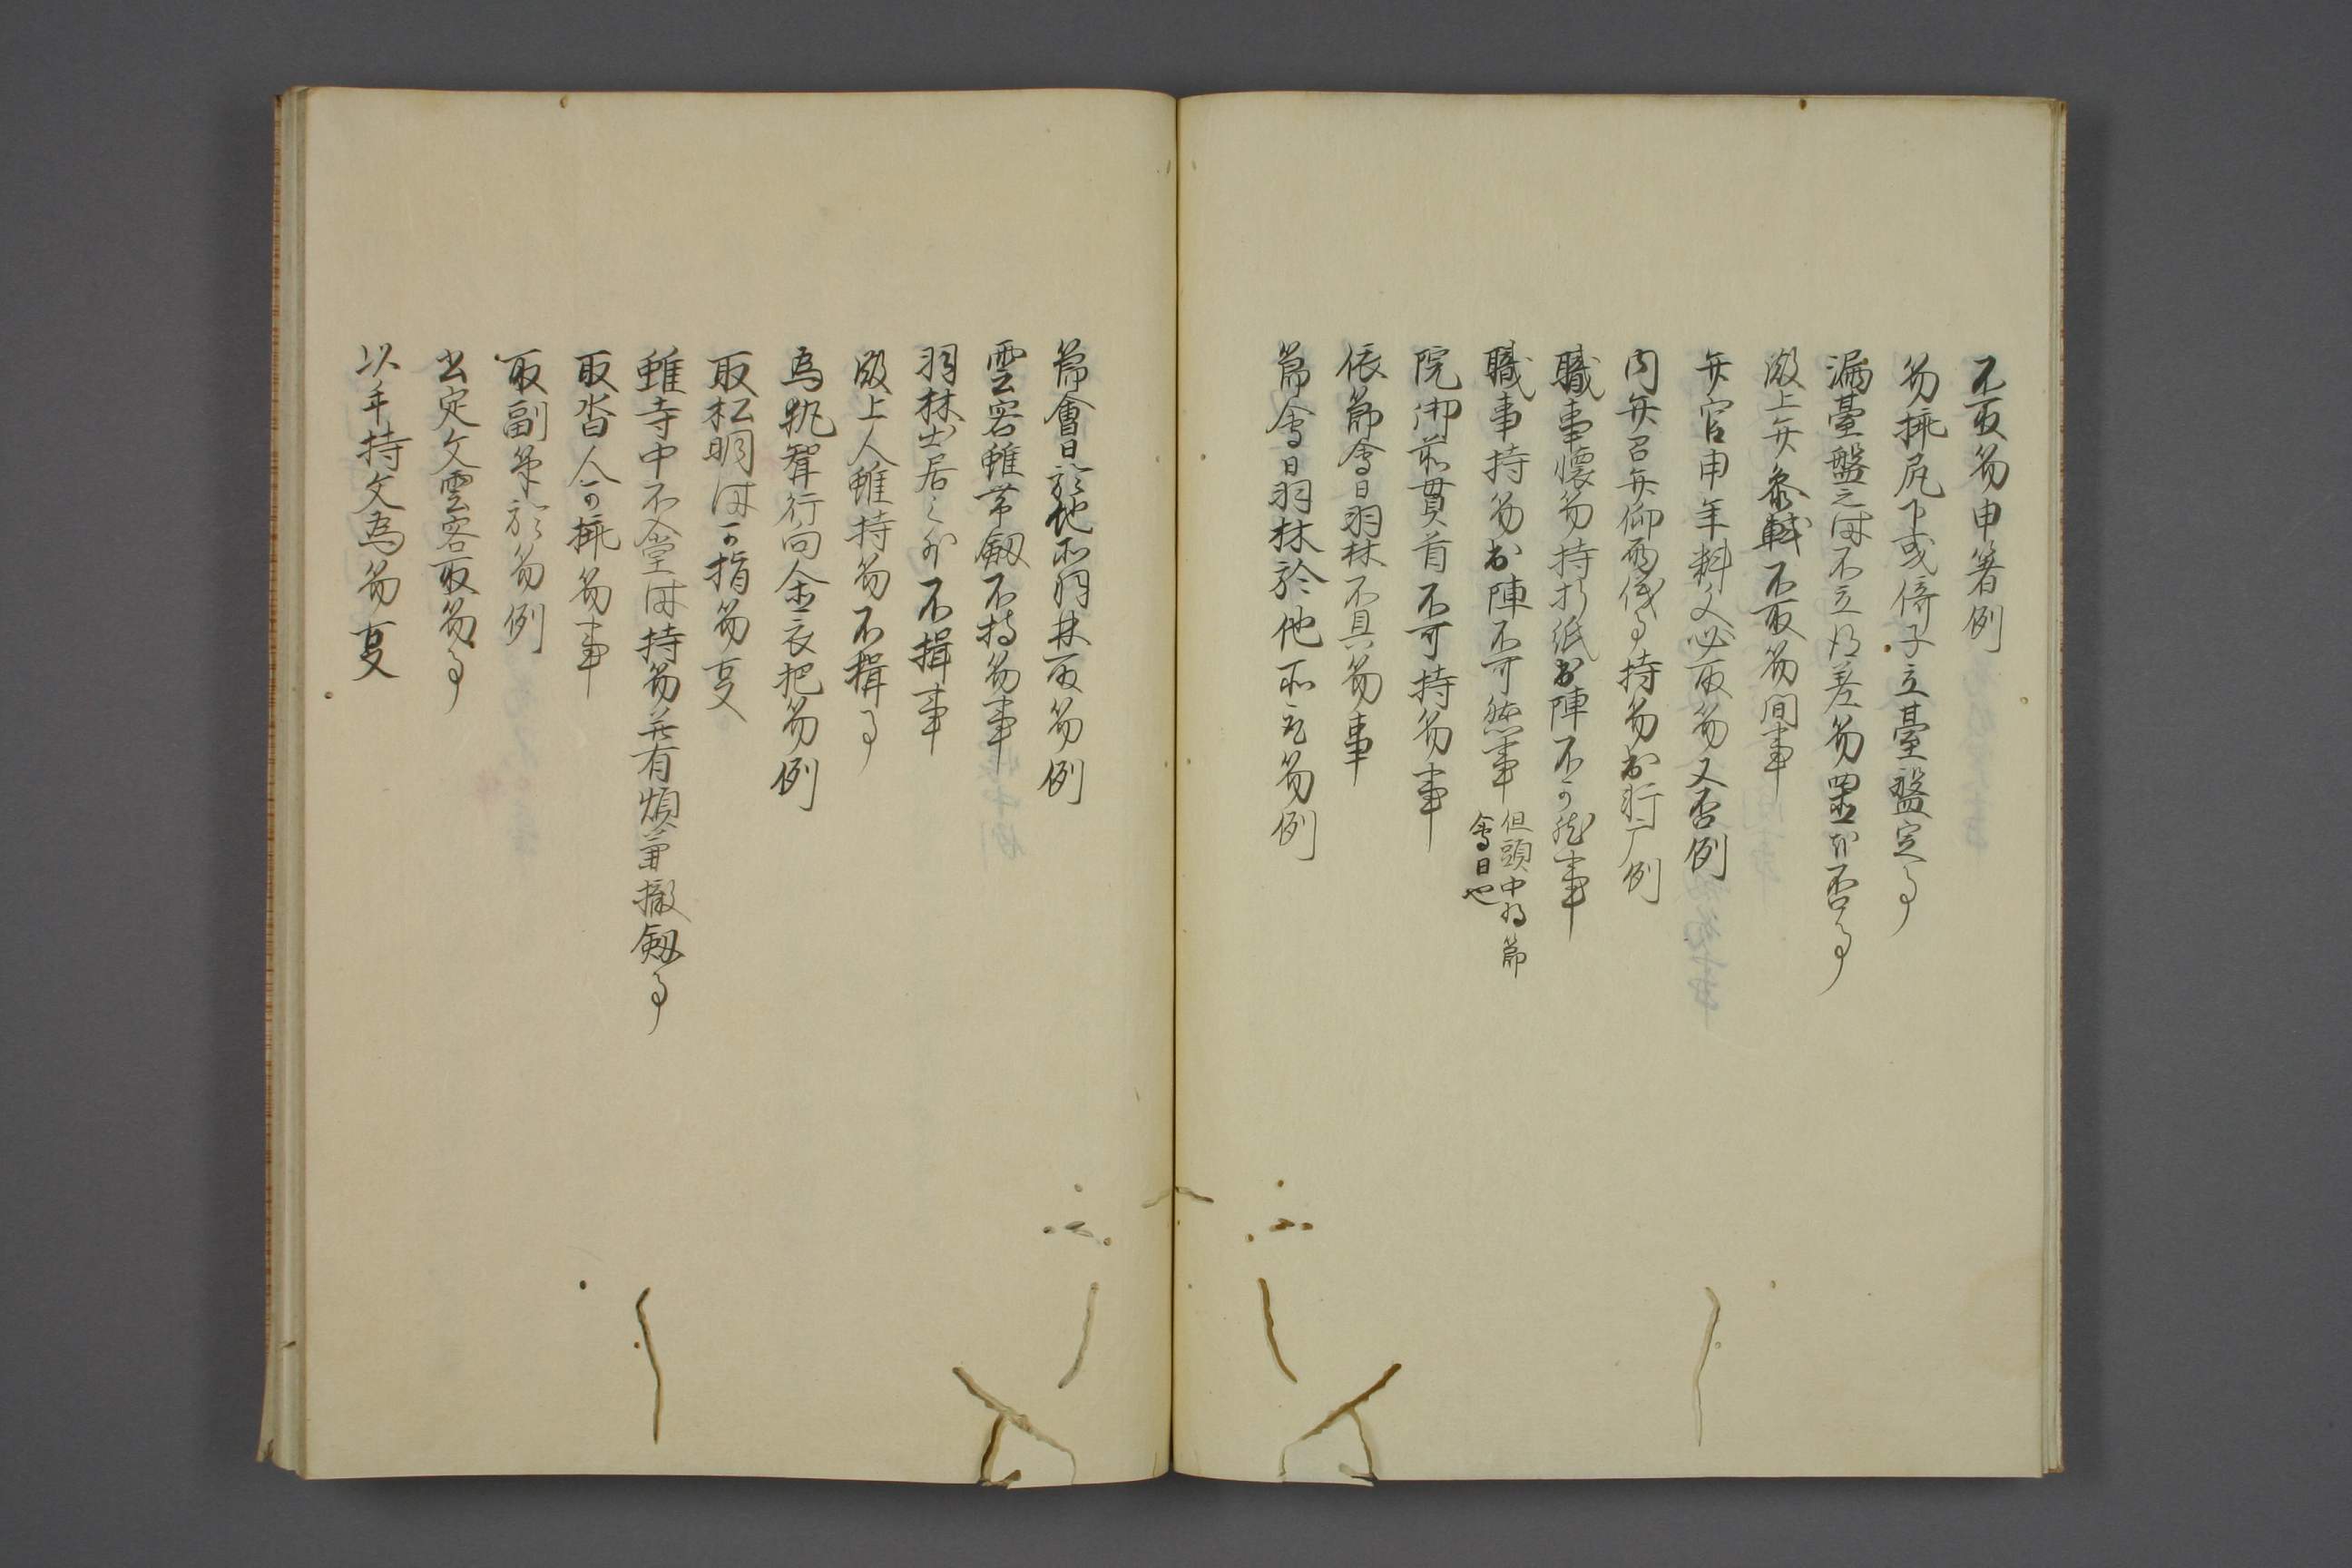 不取笏申箸例
笏挿尻下或倚子立臺盤定事
漏臺盤之時不立得差笏置否事
殿上弁参軾不取笏間事
弁官申年料文必取笏又否例
内弁召弁仰両儀事持笏出行例
職事懐笏持折紙出陣不可然事
職事持笏出陣不可然事 但頭中将節
會日也
院御前貫首不可持笏事
依節會日羽林不具笏事
節會日羽林於他所取笏例
節會日於他所羽林取笏例
雲客雖帯劔不持笏事
羽林出居之外不揖事
殿上人雖持笏不揖事
為執聟行向余衣把笏例
取松明時可指笏事
雖寺中不入堂時持笏若有煩兼撤劔事
取沓人可挿笏事
取副筆於笏例
書定文雲客取笏事
以手持文為笏事